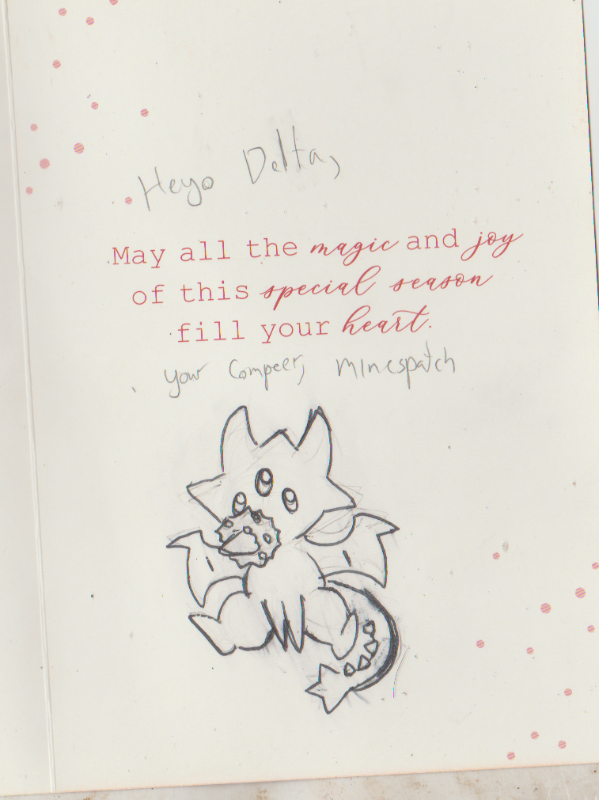 Heyo Delta,
May all the magic and joy
of this special season
fill your heart.
your Compeer, Minespatch